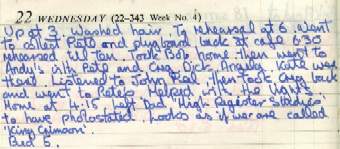 22 WEDNESDAY (22-343 Week No. 4)
Up at 3. Washed hair. T.J. rehearsal at 6. Went
to collect Pete and plugboard back at cafe 6.30
rehearsed till 10am. Took Bob home then went to
Andy's with Pete and Greg Dick, Kate was
there. Listened to John Peel then took Greg back
and went to Petes. Helped with the lights
Home at 4.15. Left Dad 'High Register Stretches'
to have photostated. Looks as if we are called
'King Crimson'.
Bed 5.